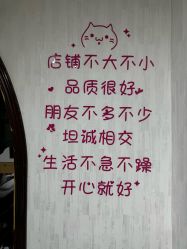 店铺不大不小
品质很好
朋友不多不少
坦诚相交
生活不急不躁
开心就好